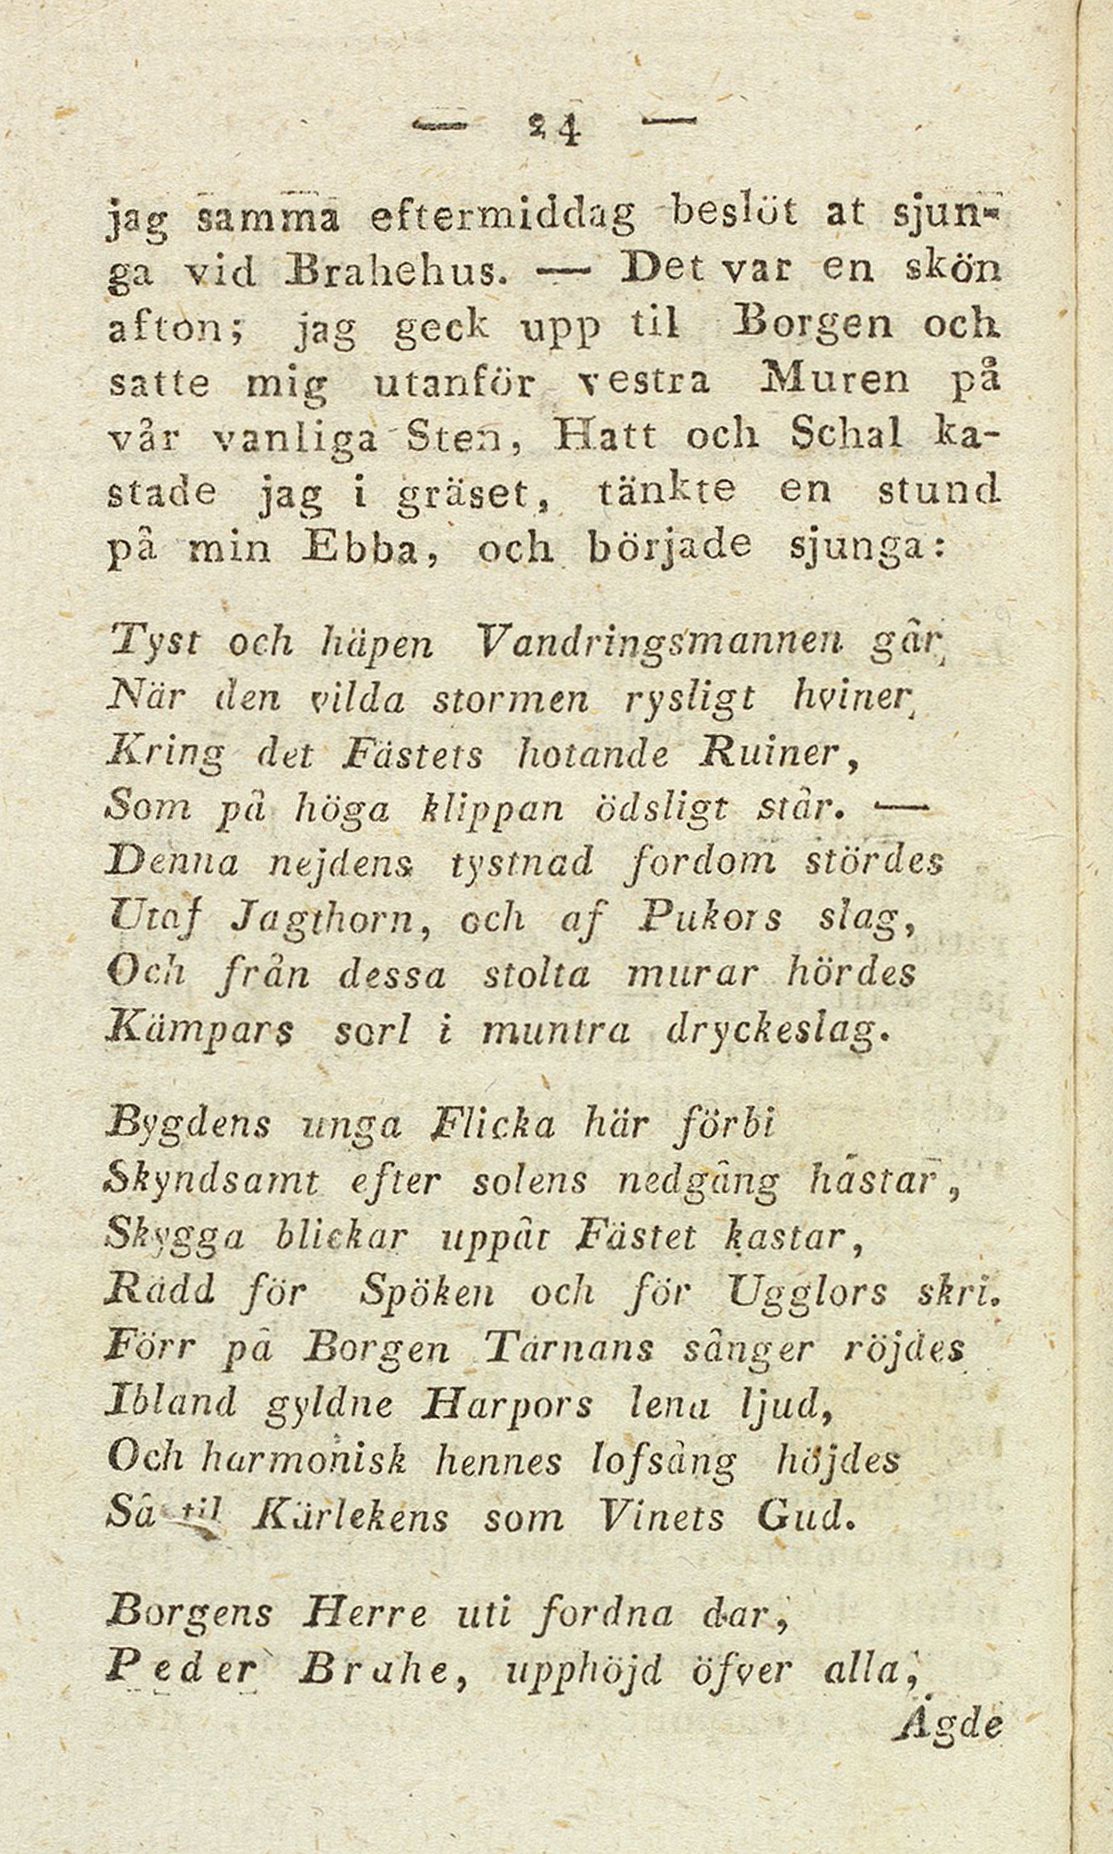 — 24 —
jag samma eftermiddag beslöt at sjun-
ga vid Brahehus. — Det var en skön
afton; jag geck upp til Borgen och
satte mig utanför vestra Muren på
vår vanliga Sten, Hatt och Schal ka-
stade jag i gräset, tänkte en stund
på min Ebba, och började sjunga:
Tyst och häpen Vandringsmannen går,
När den vilda stormen rysligt hviner,
Kring det Fästets hotande Ruiner,
Som på höga klippan ödsligt står. —
Denna nejdens tystnad fordom stördes
Utaf Jagthorn, och af Pukors slag,
Och från dessa stolta murar hördes
Kämpars sorl i muntra dryckeslag.
Bygdens unga Flicka här förbi
Skyndsamt efter solens nedgång hastar,
Skygga blickar uppåt Fästet kastar,
Rädd för Spöken och för Ugglors skri.
Förr på Borgen Tärnans sånger röjdes
Ibland gyldne Harpors lena ljud,
Och harmonisk hennes lofsång höjdes
Så til Kärlekens som Vinets Gud.
Borgens Herre uti fordna dar,
Peder Brahe, upphöjd öfver alla,
Ägde